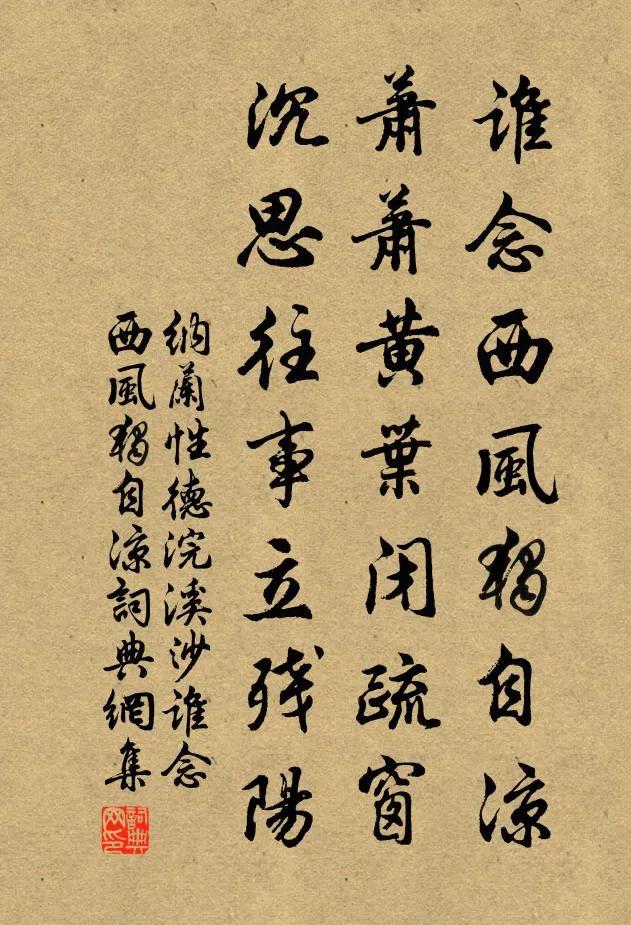 誰念西風獨自涼
蕭蕭黃葉閉疏窗
沉思往事立残陽
納蘭性德浣溪沙誰念
西風獨自涼詞典網集
詞典网印